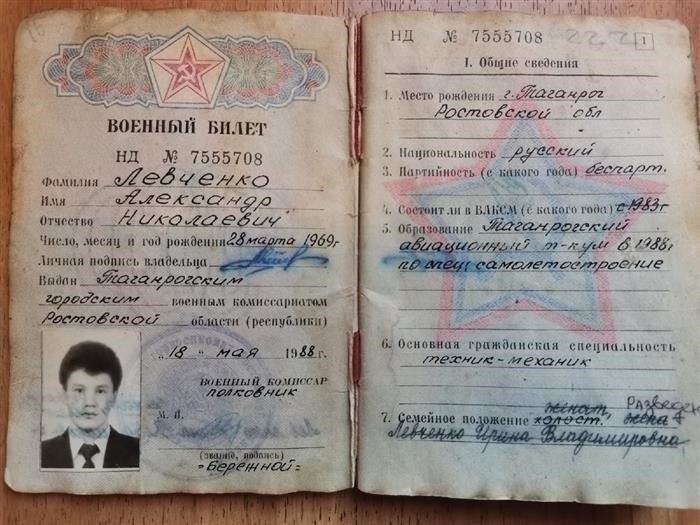 ВОЕННЫЙ БИЛЕТ
НД № 7555708
Фамилия Левченко
Имя Александр
Отчество Николаевич
Число, месяц и год рождения 28 марта 1969г
Личная подпись владельца
Выдан Таганрогским
городским военным комиссариатом
Ростовской области (республики)
„18" мая 1988г.
ВОЕННЫЙ КОМИССАР
полковник
М. П.
(звание, подпись)
=Бережной=
НД № 7555708
1
I. Общие сведения
1. Место рождения г. Таганрог
Ростовской обл
2. Национальность русский
3. Партийность (с какого года) беспарт.
4. Состоит ли в ВЛКСМ (с какого года) с 1983г
5. Образование Таганрогский
авиационный т-кум в 1988г
по спец самолетостроение
6. Основная гражданская специальность
техник-механик
женат, Разведен
7. Семейное положение холост. жена
Левченко Ирина Владимировна